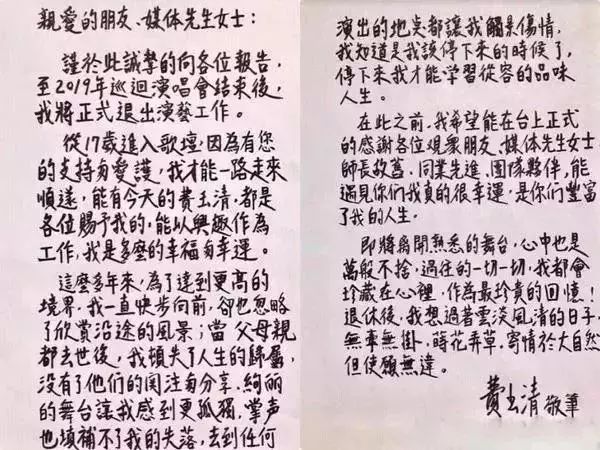 親愛的朋友、媒体先生女士：
謹於此誠摯的向各位報告，
至2019年巡迴演唱會結束後，
我將正式退出演藝工作。
從17歲進入歌壇，因為有您
的支持与愛護，我才能一路走來
順遂，能有今天的費玉清，都是
各位賜予我的，能以興趣作為
工作，我是多麼的幸福与幸運。
這麼多年來，為了達到更高的
境界，我一直快步向前，卻也忽略
了欣賞沿途的風景；當父母親
都去世後，我頓失了人生的歸屬，
沒有了他們的関注与分享，絢麗
的舞台讓我感到更孤獨，掌声
也填補不了我的失落，去到任何
演出的地点都讓我觸景傷情，
我知道是我該停下來的時候了，
停下來我才能學習從容的品味
人生。
在此之前，我希望能在台上正式
的感謝各位觀衆朋友、媒体先生女士、
師長故舊、同業先進、團隊夥伴，能
遇見你們我真的很幸運，是你們豐富
了我的人生。
即將离開熟悉的舞台，心中也是
萬般不捨，過往的一切一切，我都會
珍藏在心裡，作為最珍貴的回憶！
退休後，我想過著雲淡風清的日子，
無牽無掛，時花弄草，寄情於大自然
但使願無違。
費玉清 敬筆